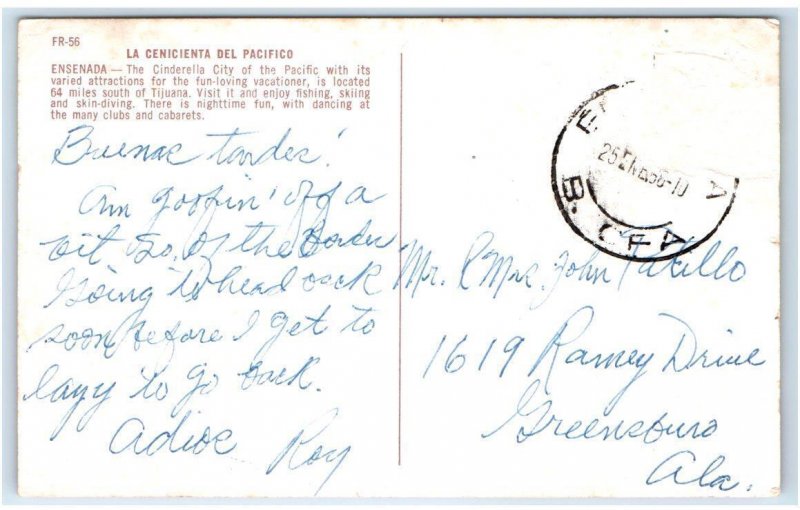 FR-56
LA CENICIENTA DEL PACIFICO
ENSENADA — The Cinderella City of the Pacific with its
varied attractions for the fun-loving vacationer, is located
64 miles south of Tijuana. Visit it and enjoy fishing, skiing
and skin-diving. There is nighttime fun, with dancing at
the many clubs and cabarets.
Buenas tardes!
Am goofin' off a
bit So. of the Border
Going to head back
soon before I get to
lazy to go back.
Adios
Roy
Mr. & Mrs. John Patillo
1619 Ramey Drive
Greensburo
Ala.